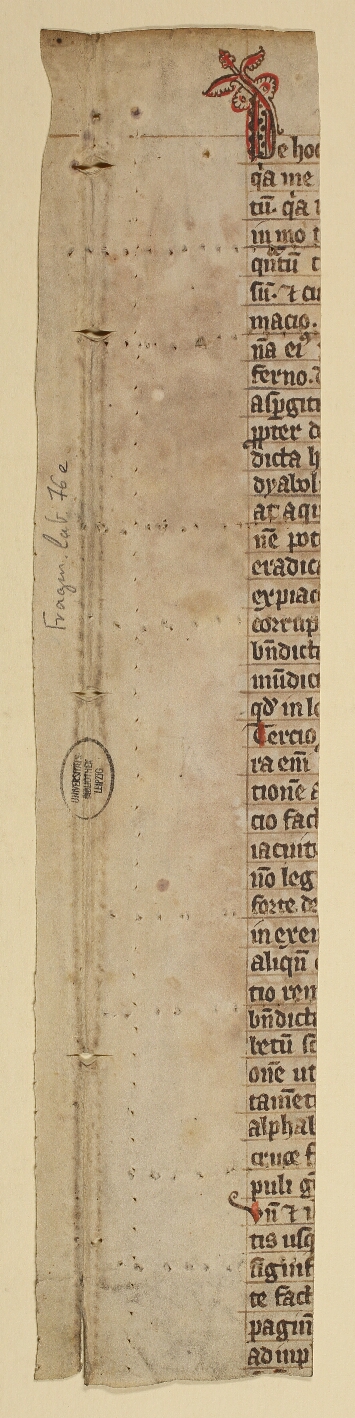 De hoc
q̓a me
tū. q̓a
in mo t
qntū t
sū. ⁊ cu
macio.
na eiꝰ
ferno.
aspgit
ppter d
dicta h
dyabol
at aqu
nē pot
eradica
expiac
corrup
bn̄dict
mūdic
qd in lo
Tercio
ra em̄
tionē a
cio fac
iacuit
nō leg
forte. de
in exe
aliqn̄
tio rem
bn̄dict
letū sc
onē ut
tamen
alphab
cruce f
puli gn̄
Vn̄ ⁊ i
tis usq
signif
te fact
pagin
ad imp
Fragm. lat. 76e
UNIVERSITÄTS
BIBLIOTHEK
LEIPZIG